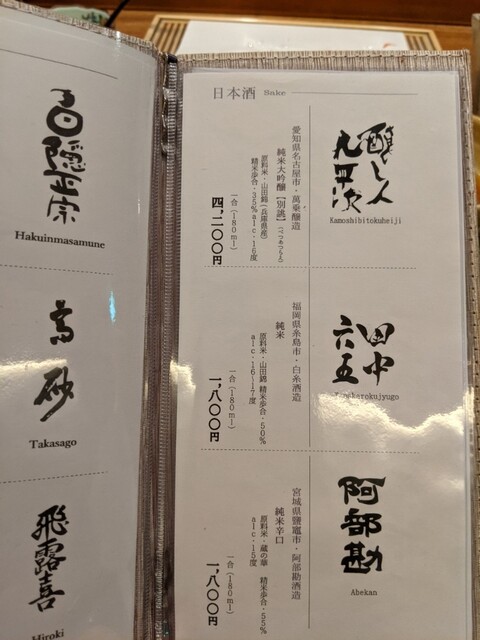 白隠正宗
Hakuinmasamune
高砂
Takasago
飛露喜
Hiroki
日本酒 Sake
醸し人
九平次
Kamoshibitokuheiji
愛知県名古屋市・萬乗醸造
純米大吟醸【別誂】(べつあつらえ)
原料米・山田錦(兵庫県産)
精米歩合・35% alc・16度
一合(180ml)
四、二〇〇円
田中
六五
愛岡県糸島市・白糸酒造
純米
原料米・山田錦 精米歩合・50%
alc・16~17度
一合(180ml)
一、八〇〇円
阿部勘
Abekan
宮城県鹽竈市・阿部勘酒造
純米辛口
原料米・蔵の華 精米歩合・55%
alc・15度
一合(180ml)
一、八〇〇円